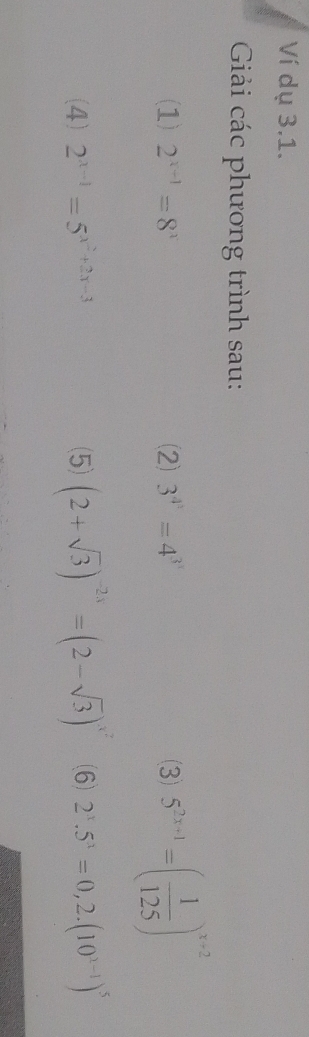 Ví dụ 3.1.
Giải các phương trình sau:
(1) 2^{x-1} = 8^{x} (2) 3^{4^{x}} = 4^{3^{x}} (3) 5^{2x+1} = (1/125)^{x+2}
(4) 2^{x-1} = 5^{x^{2}+2x-3} (5) (2+√3)^{-2x} = (2-√3)^{x^{2}} (6) 2^{x}.5^{x} = 0,2.(10^{x-1})^{5}